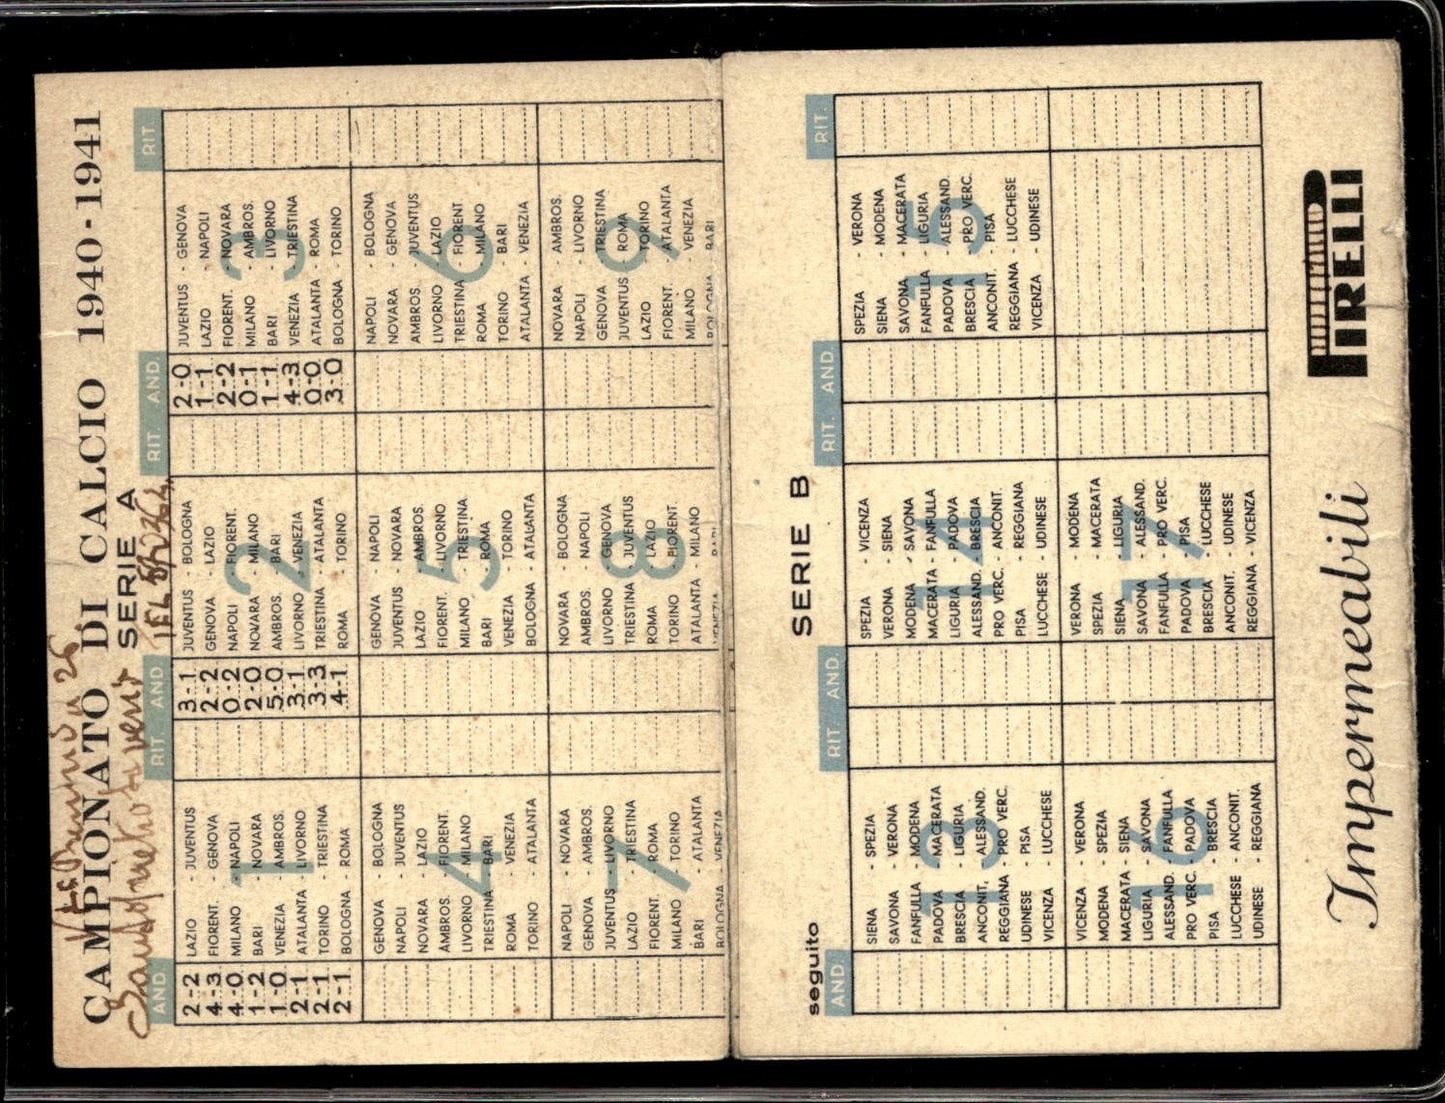 CAMPIONATO DI CALCIO 1940-1941
SERIE A
AND. RIT. AND. RIT. AND. RIT.
1
2-2 LAZIO - JUVENTUS
4-3 FIORENT. - GENOVA
4-0 MILANO - NAPOLI
1-2 BARI - NOVARA
1-0 VENEZIA - AMBROS.
2-1 ATALANTA - LIVORNO
2-1 TORINO - TRIESTINA
2-1 BOLOGNA - ROMA
2
3-1 JUVENTUS - BOLOGNA
2-2 GENOVA - LAZIO
0-2 NAPOLI - FIORENT.
2-0 NOVARA - MILANO
5-0 AMBROS. - BARI
3-1 LIVORNO - VENEZIA
3-3 TRIESTINA - ATALANTA
4-1 ROMA - TORINO
3
2-0 JUVENTUS - GENOVA
1-1 LAZIO - NAPOLI
2-2 FIORENT. - NOVARA
0-1 MILANO - AMBROS.
1-1 BARI - LIVORNO
4-3 VENEZIA - TRIESTINA
0-0 ATALANTA - ROMA
3-0 BOLOGNA - TORINO
4
GENOVA - BOLOGNA
NAPOLI - JUVENTUS
NOVARA - LAZIO
AMBROS. - FIORENT.
LIVORNO - MILANO
TRIESTINA - BARI
ROMA - VENEZIA
TORINO - ATALANTA
5
GENOVA - NAPOLI
JUVENTUS - NOVARA
LAZIO - AMBROS.
FIORENT. - LIVORNO
MILANO - TRIESTINA
BARI - ROMA
VENEZIA - TORINO
BOLOGNA - ATALANTA
6
NAPOLI - BOLOGNA
NOVARA - GENOVA
AMBROS. - JUVENTUS
LIVORNO - LAZIO
TRIESTINA - FIORENT
ROMA - MILANO
TORINO - BARI
ATALANTA - VENEZIA
7
NAPOLI - NOVARA
GENOVA - AMBROS.
JUVENTUS - LIVORNO
LAZIO - TRIESTINA
FIORENT. - ROMA
MILANO - TORINO
BARI - ATALANTA
BOLOGNA - VENEZIA
8
NOVARA - BOLOGNA
AMBROS. - NAPOLI
LIVORNO - GENOVA
TRIESTINA - JUVENTUS
ROMA - LAZIO
TORINO - FIORENT.
ATALANTA - MILANO
VENEZIA - BARI
9
NOVARA - AMBROS.
NAPOLI - LIVORNO
GENOVA - TRIESTINA
JUVENTUS - ROMA
LAZIO - TORINO
FIORENT. - ATALANTA
MILANO - VENEZIA
BOLOGNA - BARI
seguito SERIE B
AND. RIT. AND. RIT. AND. RIT.
13
SIENA - SPEZIA
SAVONA - VERONA
FANFULLA - MODENA
PADOVA - MACERATA
BRESCIA - LIGURIA
ANCONIT. - ALESSAND.
REGGIANA - PRO VERC.
UDINESE - PISA
VICENZA - LUCCHESE
14
SPEZIA - VICENZA
VERONA - SIENA
MODENA - SAVONA
MACERATA - FANFULLA
LIGURIA - PADOVA
ALESSAND. - BRESCIA
PRO VERC. - ANCONIT.
PISA - REGGIANA
LUCCHESE - UDINESE
15
SPEZIA - VERONA
SIENA - MODENA
SAVONA - MACERATA
FANFULLA - LIGURIA
PADOVA - ALESSAND.
BRESCIA - PRO VERC.
ANCONIT. - PISA
REGGIANA - LUCCHESE
VICENZA - UDINESE
16
VICENZA - VERONA
MODENA - SPEZIA
MACERATA - SIENA
LIGURIA - SAVONA
ALESSAND. - FANFULLA
PRO VERC. - PADOVA
PISA - BRESCIA
LUCCHESE - ANCONIT.
UDINESE - REGGIANA
17
VERONA - MODENA
SPEZIA - MACERATA
SIENA - LIGURIA
SAVONA - ALESSAND.
FANFULLA - PRO VERC.
PADOVA - PISA
BRESCIA - LUCCHESE
ANCONIT. - UDINESE
REGGIANA - VICENZA
Impermeabili PIRELLI